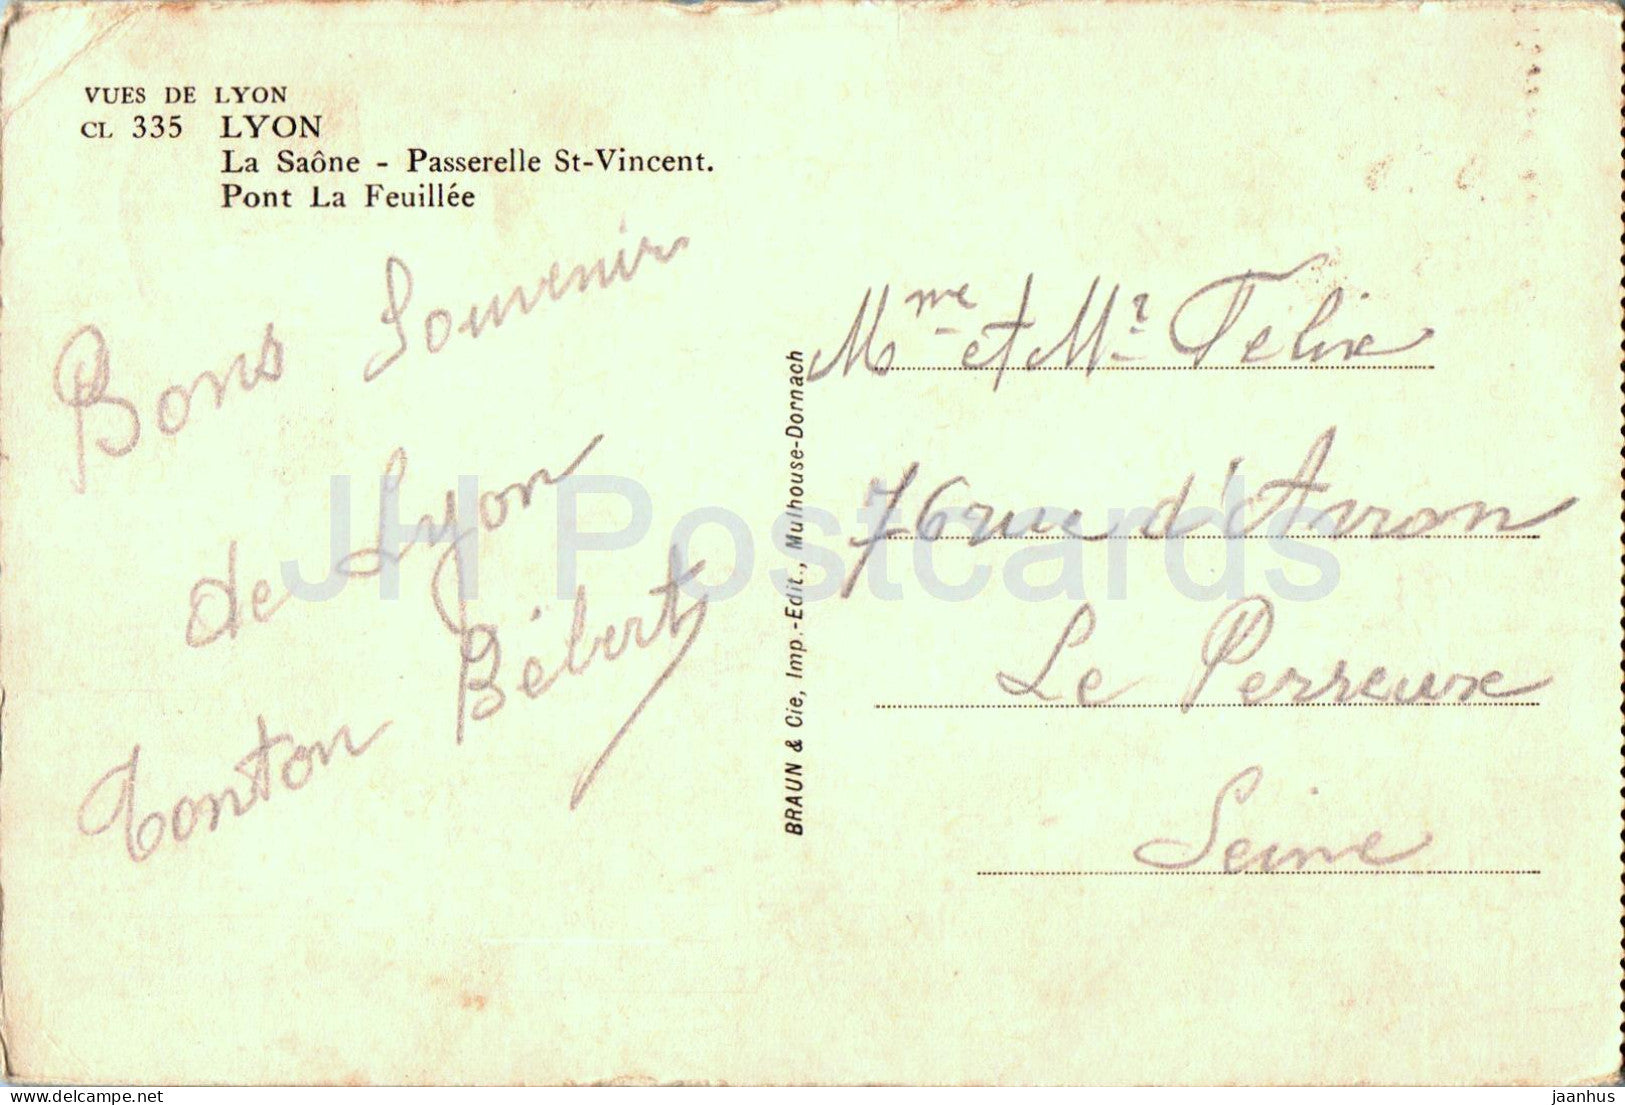 VUES DE LYON
CL 335 LYON
La Saône - Passerelle St-Vincent.
Pont La Feuillée
Bons Souvenir
de Lyon
Tonton Bébert
BRAUN & Cie, Imp.-Edit., Mulhouse-Dornach
Mme et Mr Félix
76 rue d'Avron
Le Perreux
Seine
JH Postcards
hippostcard.com
jaanhus